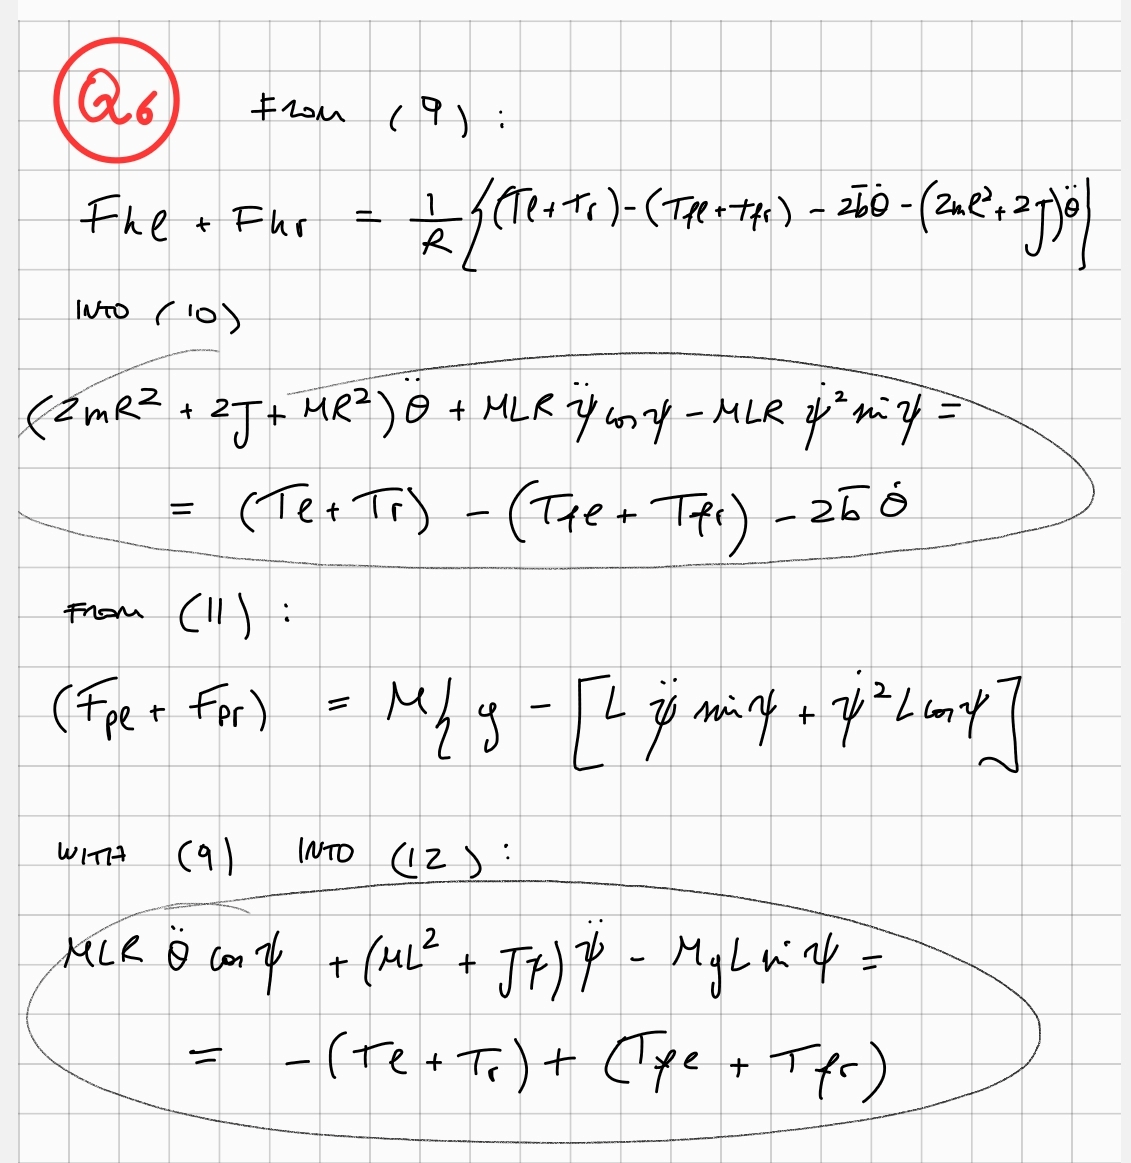 Q6
From (9):
Fhl + Fhr = 1/R {(Tl+Tr)-(Tfl+Tfr) - 2b̄θ̇ - (2mR²+2J)θ̈}
INTO (10)
(2mR² + 2J + MR²)θ̈ + MLR ψ̈ cos ψ - MLR ψ̇² sin ψ =
= (Tl + Tr) - (Tfl + Tfr) - 2b̄ θ̇
From (11):
(Fpl + Fpr) = M{ g - [L ψ̈ sin ψ + ψ̇² L cos ψ]
WITH (9) INTO (12):
MLR θ̈ cos ψ + (ML² + Jψ)ψ̈ - MgL sin ψ =
= -(Tl + Tr) + (Tfl + Tfr)